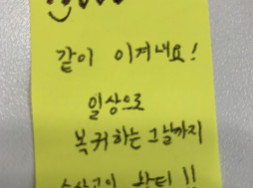 같이 이겨내요!
일상으로
복귀하는 그날까지
화이팅!!